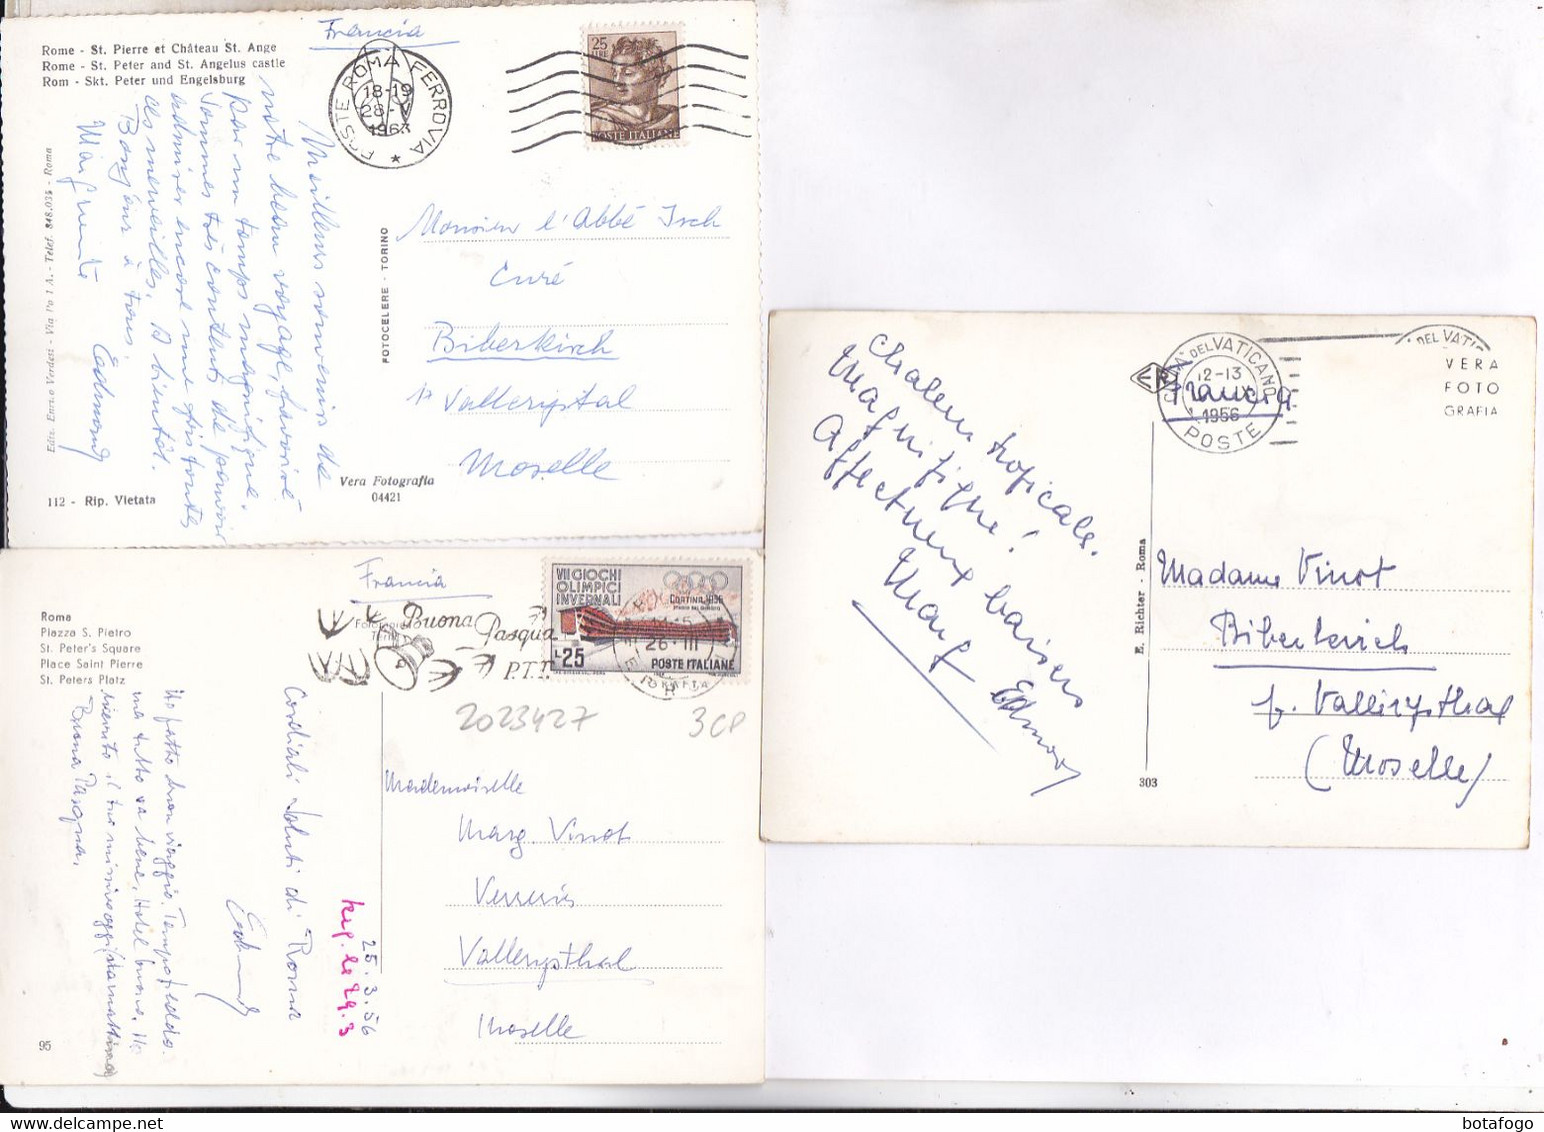 Rome - St. Pierre et Château St. Ange
Rome - St. Peter and St. Angelus castle
Rom - Skt. Peter und Engelsburg
Francia
POSTE ROMA FERROVIA
18-19
28-V
1963
25
LIRE
POSTE ITALIANE
Meilleurs souvenirs de
notre beau voyage, favorisé
par un temps magnifique.
Sommes très contents de pouvoir
admirer encore une fois toutes
ces merveilles. A bientôt.
Bonjour à tous.
Marguerite Edmond
Ediz. Enrico Verdesi - Via Po 1 A. - Telef. 848.038 - Roma
112 - Rip. Vietata
FOTOCELERE - TORINO
Vera Fotografia
04421
Monsieur l'Abbé Isch
Curé
Biberkirch
Vallerystal
Moselle
Roma
Piazza S. Pietro
St. Peter's Square
Place Saint Pierre
St. Peters Platz
95
Francia
Buona Pasqua
P.T.T.
VII GIOCHI
OLIMPICI
INVERNALI
CORTINA 1956
L.25
POSTE ITALIANE
26 III
2023427
3CP
Ho fatto buon viaggio. Tempo freddo.
ma tutto va bene, Hotel buono. Ho
ricevuto il tuo oggi
Buona Pasqua.
Cordiali saluti di Roma
Edmond
25.3.56
le 29.3
Mademoiselle
Marg. Vinot
Verrerie
Vallerysthal
Moselle
Chaleur tropicale.
Magnifique!
Affectueux baisers
Marg Edmond
CITTA DEL VATICANO
12-13
1956
POSTE
DEL VATI
VERA
FOTO
GRAFIA
Francia
ER
E. Richter - Roma
303
Madame Vinot
Biberkirch
p. Vallerysthal
(Moselle)
botafogo